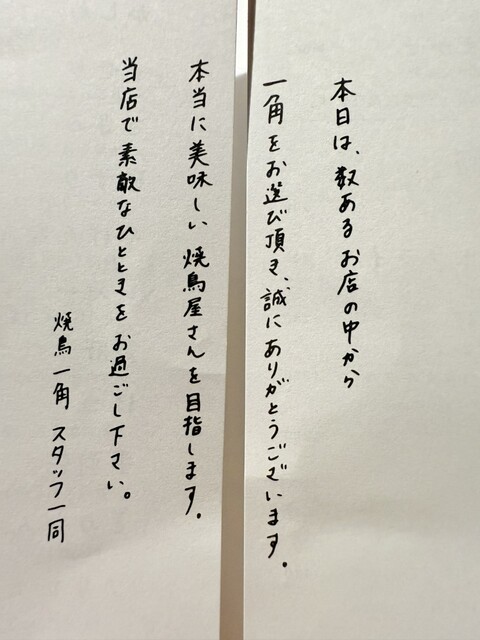 本日は、数あるお店の中から
一角をお選び頂き、誠にありがとうございます。
本当に美味しい焼鳥屋さんを目指します。
当店で素敵なひとときをお過ごし下さい。
焼鳥一角 スタッフ一同